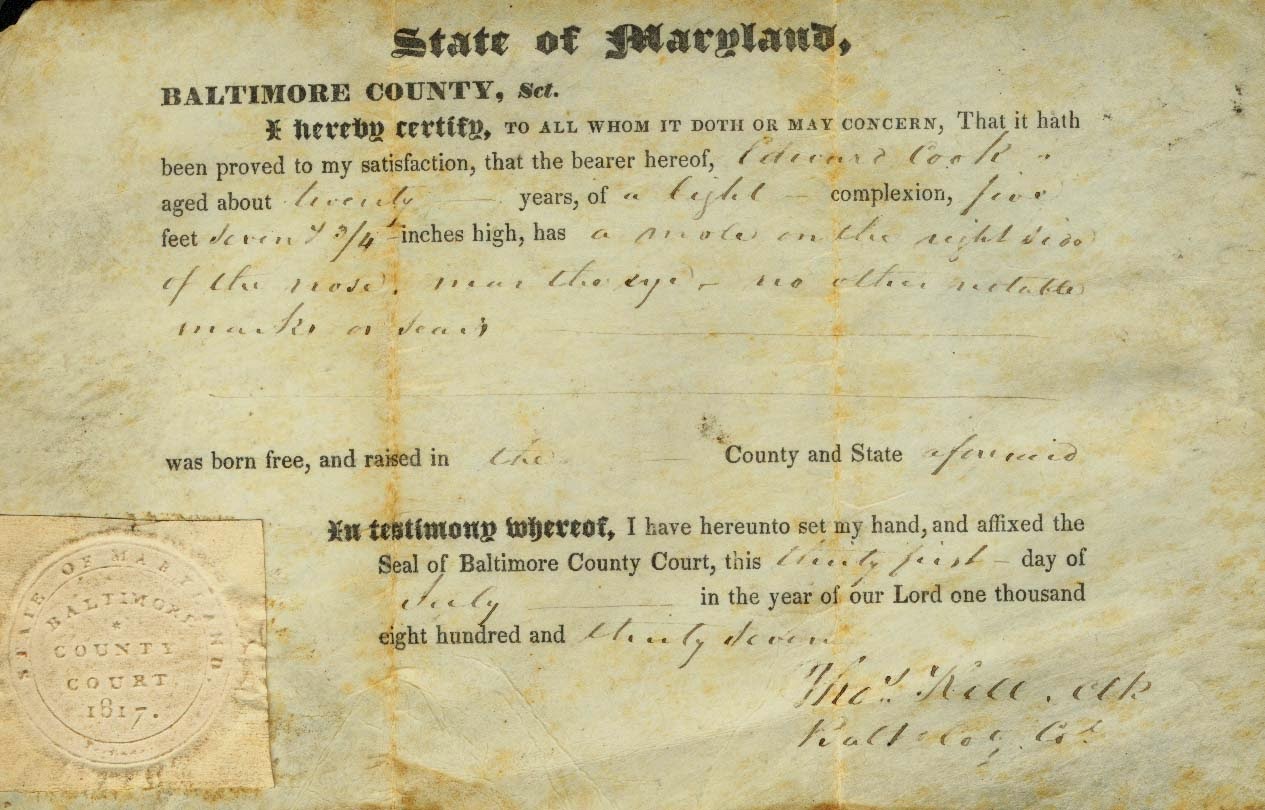 State of Maryland,
BALTIMORE COUNTY, Sct.
I hereby certify, TO ALL WHOM IT DOTH OR MAY CONCERN, That it hath
been proved to my satisfaction, that the bearer hereof, Edward Cook
aged about twenty years, of a light complexion, five
feet seven & 3/4 inches high, has a mole on the right side
of the nose, near the eye - no other notable
marks or scars
was born free, and raised in the County and State aforesaid
In testimony whereof, I have hereunto set my hand, and affixed the
Seal of Baltimore County Court, this thirty first day of
July in the year of our Lord one thousand
eight hundred and thirty seven
Thos. Kell. Clk
Balt Coy Ct
STATE OF MARYLAND.
BALTIMORE
*
COUNTY
COURT
1817.